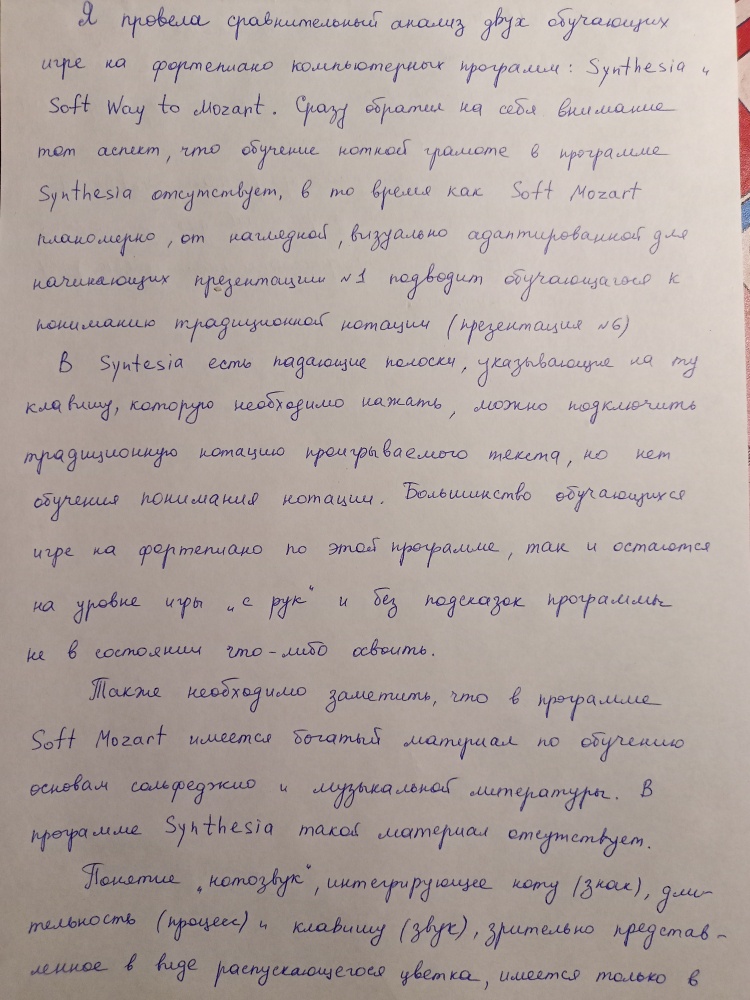 Я провела сравнительный анализ двух обучающих
игре на фортепиано компьютерных программ: Synthesia и
Soft Way to Mozart. Сразу обратил на себя внимание
тот аспект, что обучение нотной грамоте в программе
Synthesia отсутствует, в то время как Soft Mozart
планомерно, от наглядной, визуально адаптированной для
начинающих презентации №1 подводит обучающегося к
пониманию традиционной нотации (презентация №6)
В Syntesia есть падающие полоски, указывающие на ту
клавишу, которую необходимо нажать, можно подключить
традиционную нотацию проигрываемого текста, но нет
обучения понимания нотации. Большинство обучающихся
игре на фортепиано по этой программе, так и остаются
на уровне игры „с рук" и без подсказок программы
не в состоянии что-либо освоить.
Также необходимо заметить, что в программе
Soft Mozart имеется богатый материал по обучению
основам сольфеджио и музыкальной литературы. В
программе Synthesia такой материал отсутствует.
Понятие „нотозвук", интегрирующее ноту (знак), дли-
тельность (процесс) и клавишу (звук), зрительно представ-
ленное в виде распускающегося цветка, имеется только в